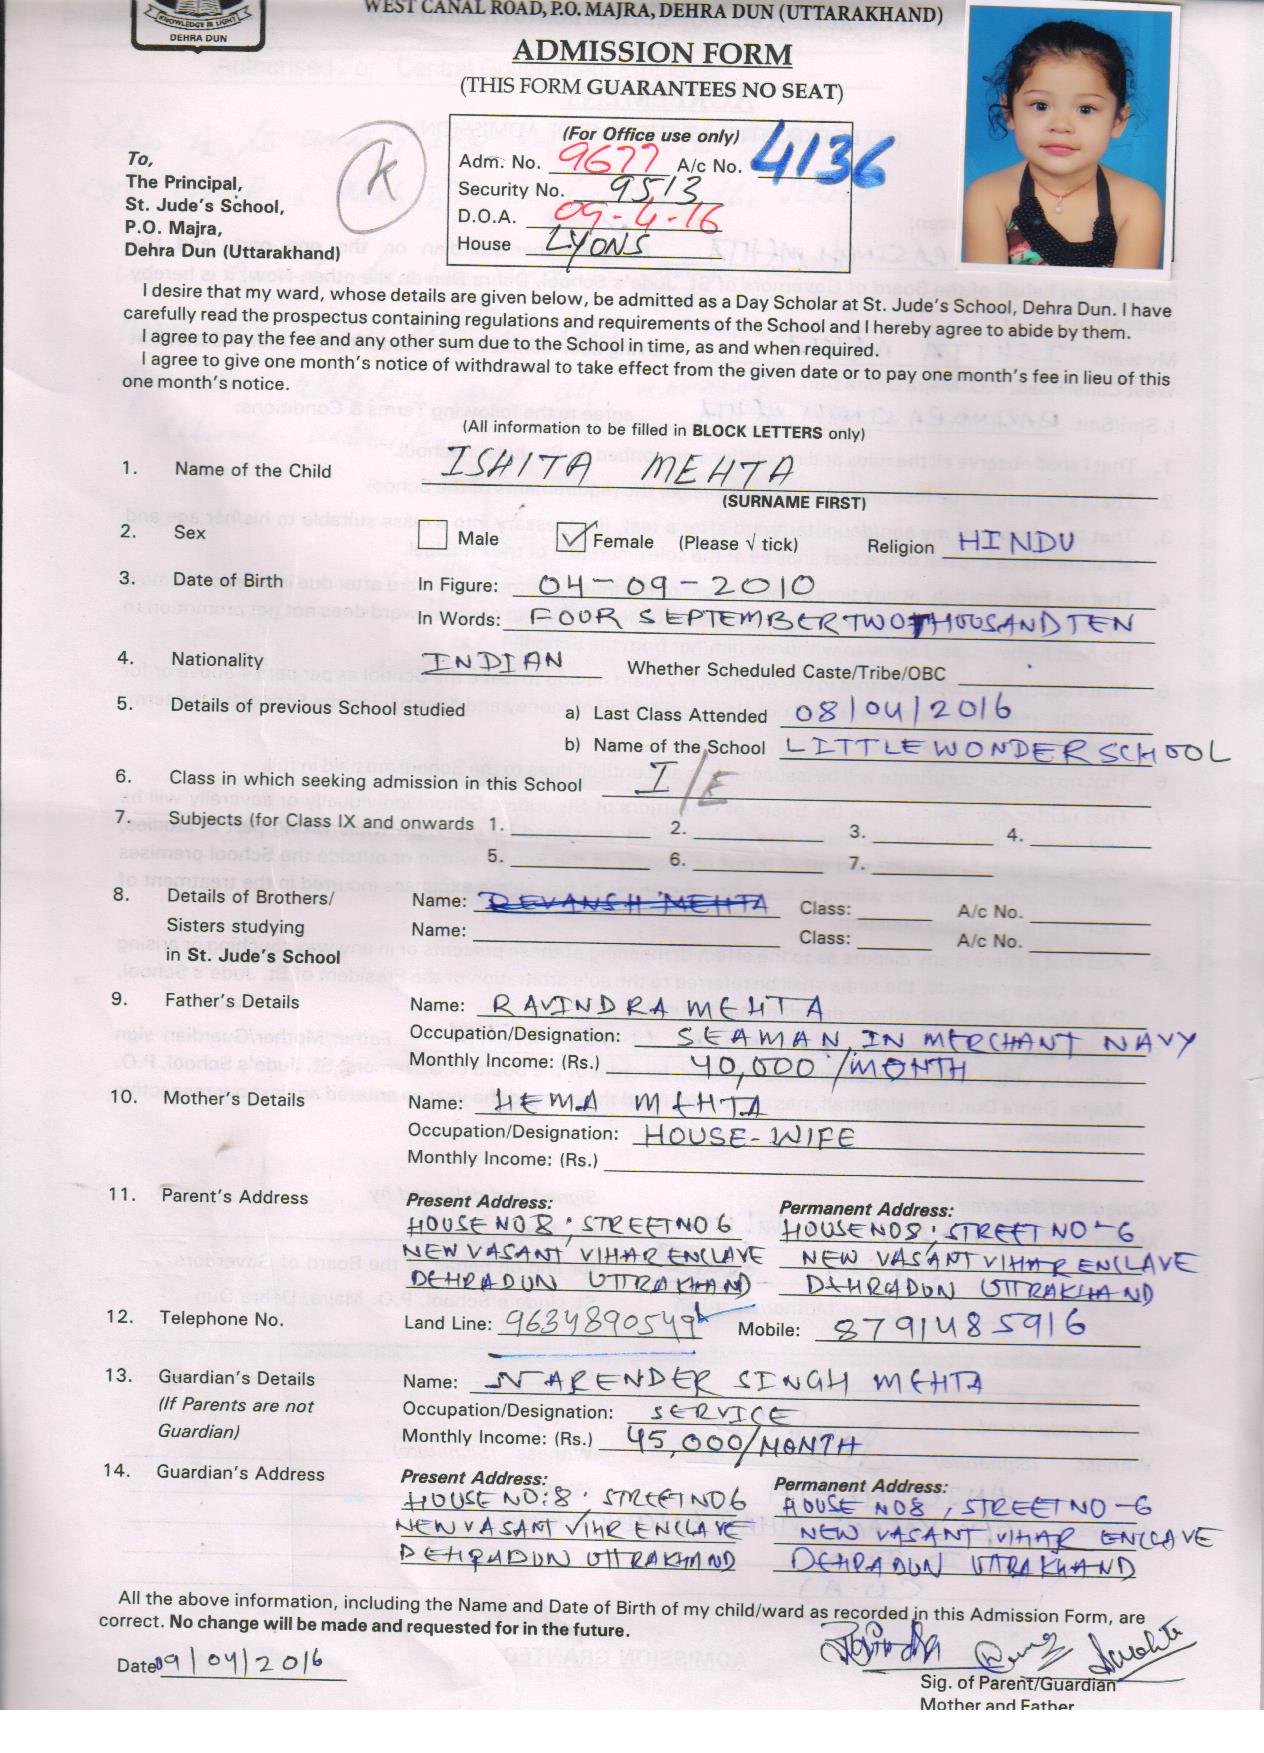 KNOWLEDGE IS LIGHT
DEHRA DUN
WEST CANAL ROAD, P.O. MAJRA, DEHRA DUN (UTTARAKHAND)
ADMISSION FORM
(THIS FORM GUARANTEES NO SEAT)
K
(For Office use only)
Adm. No. 9677 A/c No. 4136
Security No. 9513
D.O.A. 09-4-16
House LYONS
To,
The Principal,
St. Jude's School,
P.O. Majra,
Dehra Dun (Uttarakhand)
I desire that my ward, whose details are given below, be admitted as a Day Scholar at St. Jude's School, Dehra Dun. I have
carefully read the prospectus containing regulations and requirements of the School and I hereby agree to abide by them.
I agree to pay the fee and any other sum due to the School in time, as and when required.
I agree to give one month's notice of withdrawal to take effect from the given date or to pay one month's fee in lieu of this
one month's notice.
(All information to be filled in BLOCK LETTERS only)
1. Name of the Child ISHITA MEHTA
(SURNAME FIRST)
2. Sex Male Female (Please √ tick) Religion HINDU
3. Date of Birth In Figure: 04-09-2010
In Words: FOUR SEPTEMBER TWO THOUSAND TEN
4. Nationality INDIAN Whether Scheduled Caste/Tribe/OBC
5. Details of previous School studied a) Last Class Attended 08/04/2016
b) Name of the School LITTLE WONDER SCHOOL
6. Class in which seeking admission in this School I/E
7. Subjects (for Class IX and onwards 1. 2. 3. 4.
5. 6. 7.
8. Details of Brothers/ Name: DEVANSH MEHTA Class: A/c No.
Sisters studying Name: Class: A/c No.
in St. Jude's School
9. Father's Details Name: RAVINDRA MEHTA
Occupation/Designation: SEAMAN IN MERCHANT NAVY
Monthly Income: (Rs.) 40,000/MONTH
10. Mother's Details Name: HEMA MEHTA
Occupation/Designation: HOUSE-WIFE
Monthly Income: (Rs.)
11. Parent's Address Present Address: Permanent Address:
HOUSE NO 8, STREET NO 6 HOUSE NO 8, STREET NO-6
NEW VASANT VIHAR ENCLAVE NEW VASANT VIHAR ENCLAVE
DEHRADUN UTTRAKHAND DEHRADUN UTTRAKHAND
12. Telephone No. Land Line: 9634890549 Mobile: 8791485916
13. Guardian's Details Name: NARENDER SINGH MEHTA
(If Parents are not Occupation/Designation: SERVICE
Guardian) Monthly Income: (Rs.) 45,000/MONTH
14. Guardian's Address Present Address: Permanent Address:
HOUSE NO:8, STREET NO 6 HOUSE NO8, STREET NO-6
NEW VASANT VIHR ENCLAVE NEW VASANT VIHAR ENCLAVE
DEHRADUN UTTRAKHAND DEHRADUN UTTRAKHAND
All the above information, including the Name and Date of Birth of my child/ward as recorded in this Admission Form, are
correct. No change will be made and requested for in the future.
Date 09/04/2016
Sig. of Parent/Guardian
Mother and Father